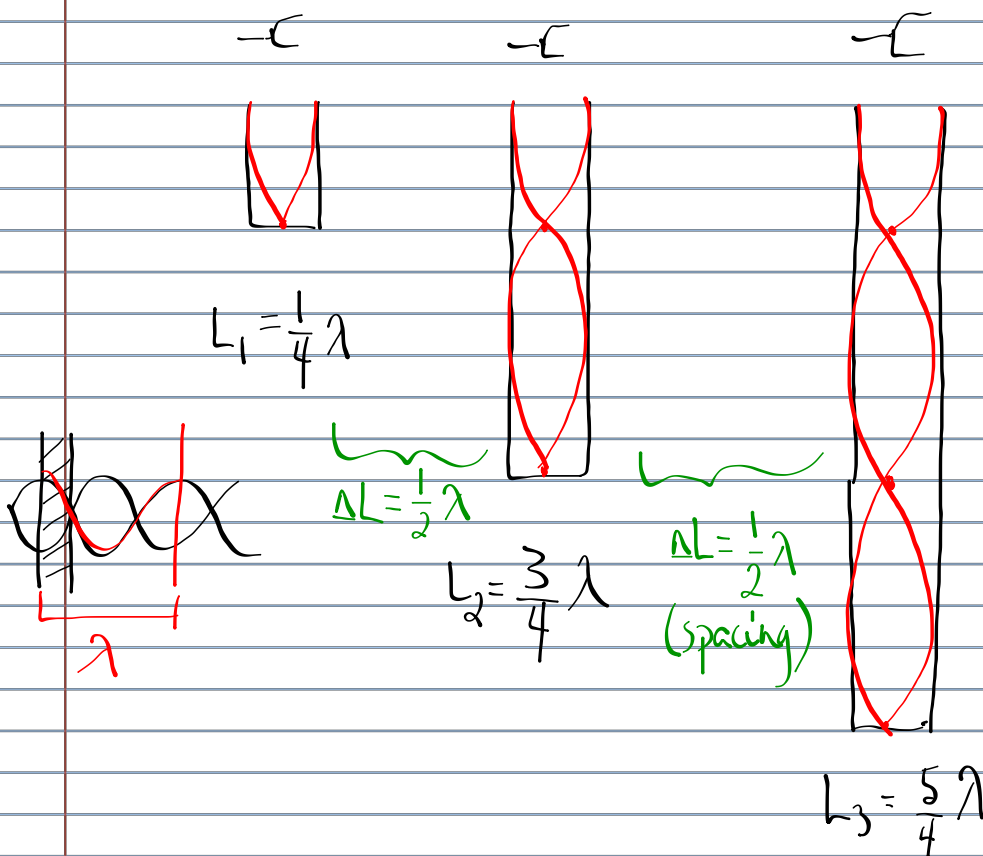 L₁ = 1/4 λ
ΔL = 1/2 λ
L₂ = 3/4 λ
ΔL = 1/2 λ
(spacing)
λ
L₃ = 5/4 λ